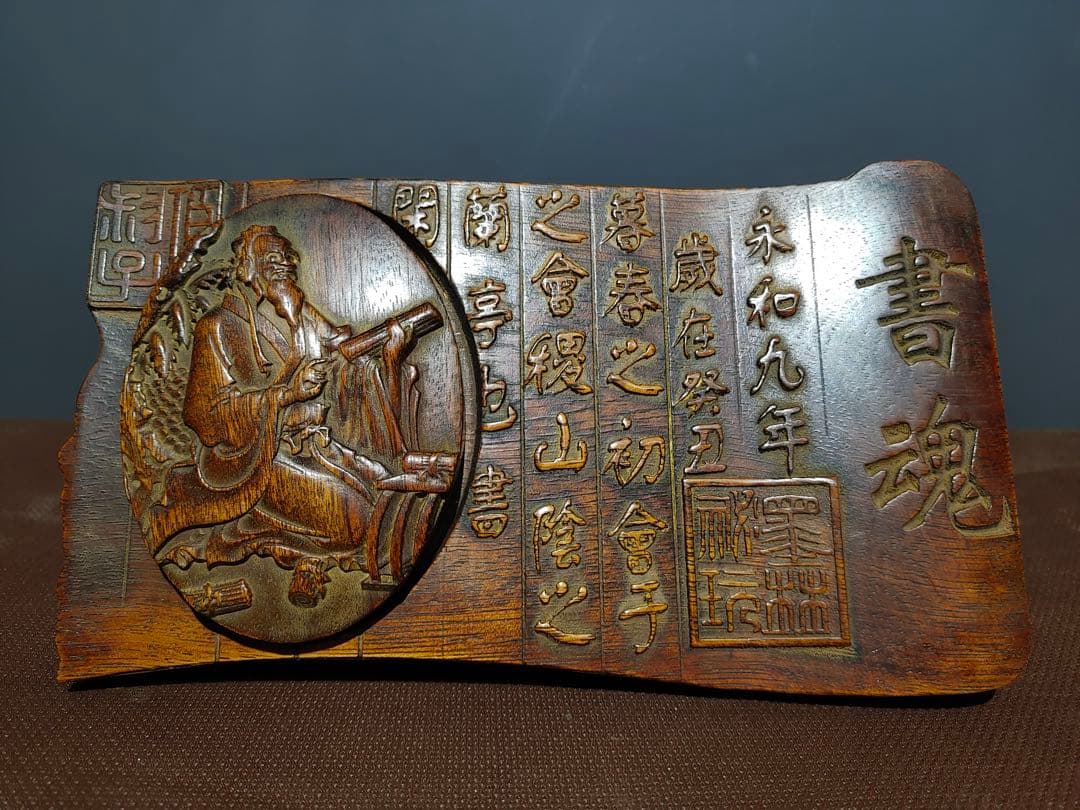 書魂
永和九年
歲在癸丑
暮春之初會于
之會稽山陰之
蘭亭也書
閑
墨林祕玩